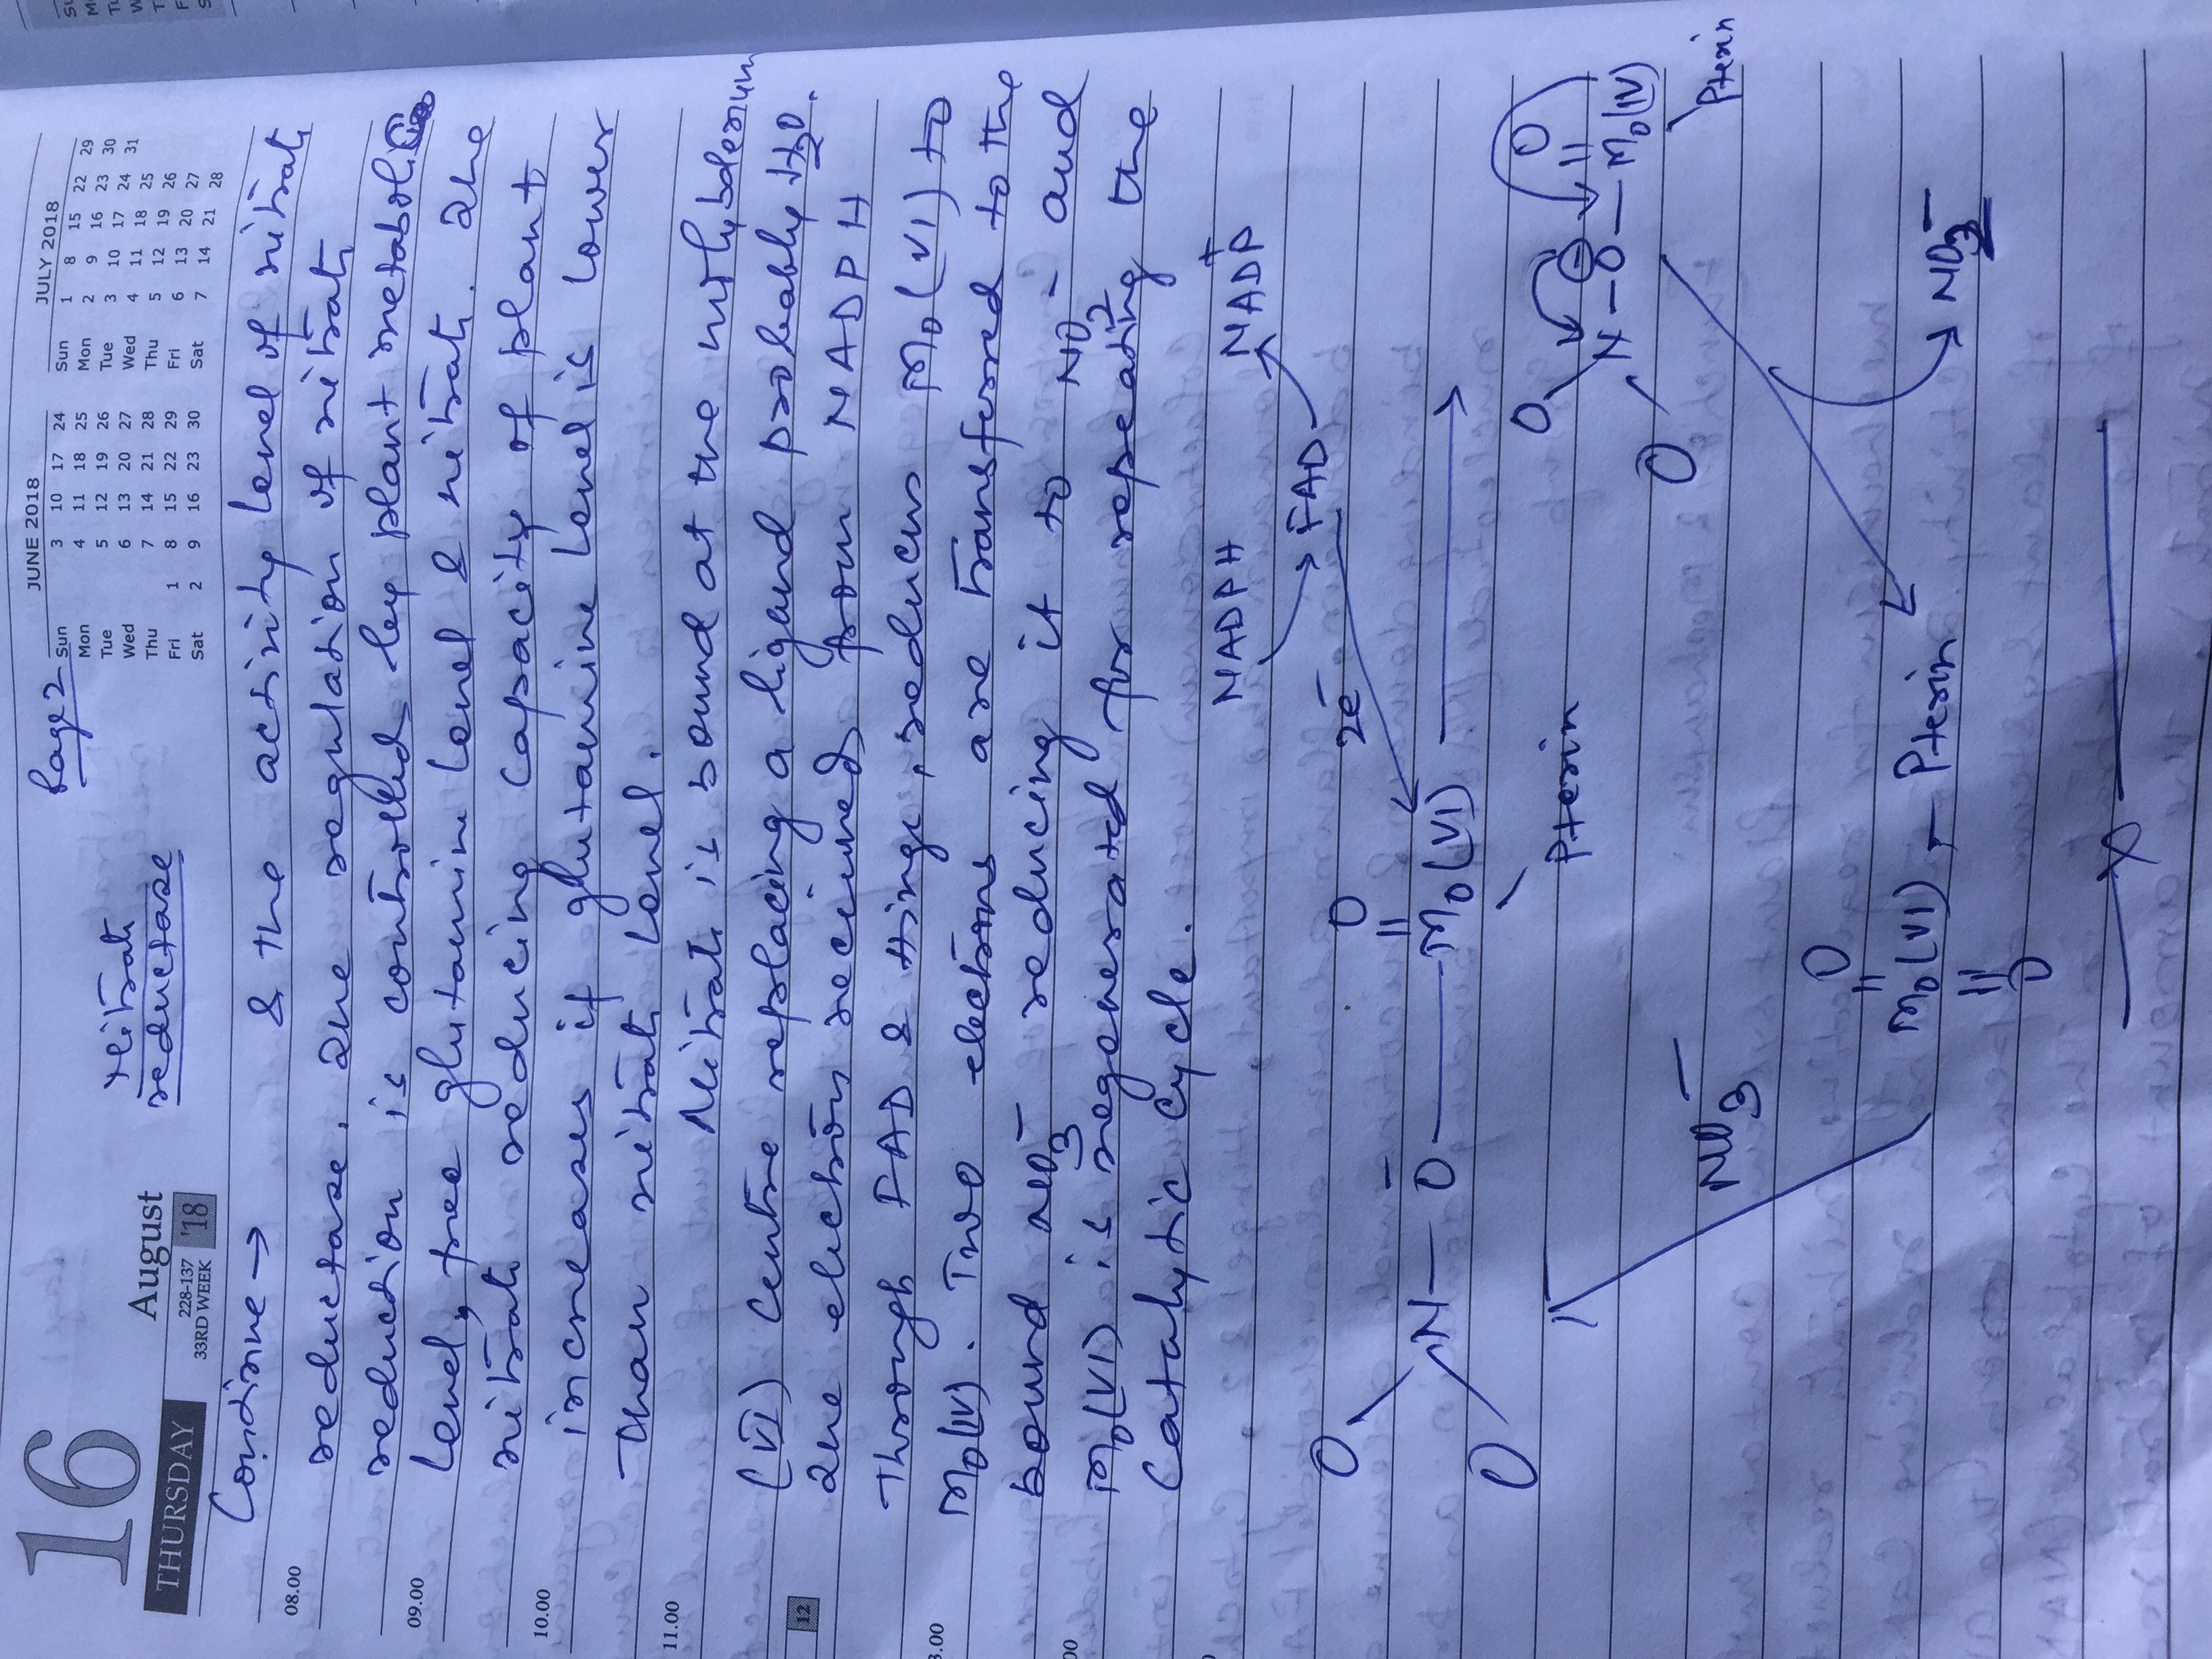 16
THURSDAY
August
228-137
33RD WEEK '18
Nitrate
reductase
Page 2
JUNE 2018
Sun 3 10 17 24
Mon 4 11 18 25
Tue 5 12 19 26
Wed 6 13 20 27
Thu 7 14 21 28
Fri 1 8 15 22 29
Sat 2 9 16 23 30
JULY 2018
Sun 1 8 15 22 29
Mon 2 9 16 23 30
Tue 3 10 17 24 31
Wed 4 11 18 25
Thu 5 12 19 26
Fri 6 13 20 27
Sat 7 14 21 28
Continue → & the activity level of nitrate
08.00
reductase. The regulation of nitrate
reduction is controlled by plant metabolic
09.00
level, free glutamin level & nitrate. The
nitrate reducing capacity of plant
10.00
increases if glutamine level is lower
than nitrate level.
11.00
Nitrate is bound at the molybdenum
(VI) centre replacing a ligand probably H2O.
12
The electrons received from NADPH
through FAD & things, reduces Mo(VI) to
Mo(IV). Two electrons are transferred to the
bound NO3- reducing it to NO2- and
Mo(VI) is regenerated for repeating the
Catalytic cycle.
NADPH → FAD → NADP+
2e-
O
O N — O — Mo(VI) →
O
Pterin
O
O N — O — Mo(IV)
O
Pterin
NO3-
NO3-
O
Mo(VI) — Pterin
O
X